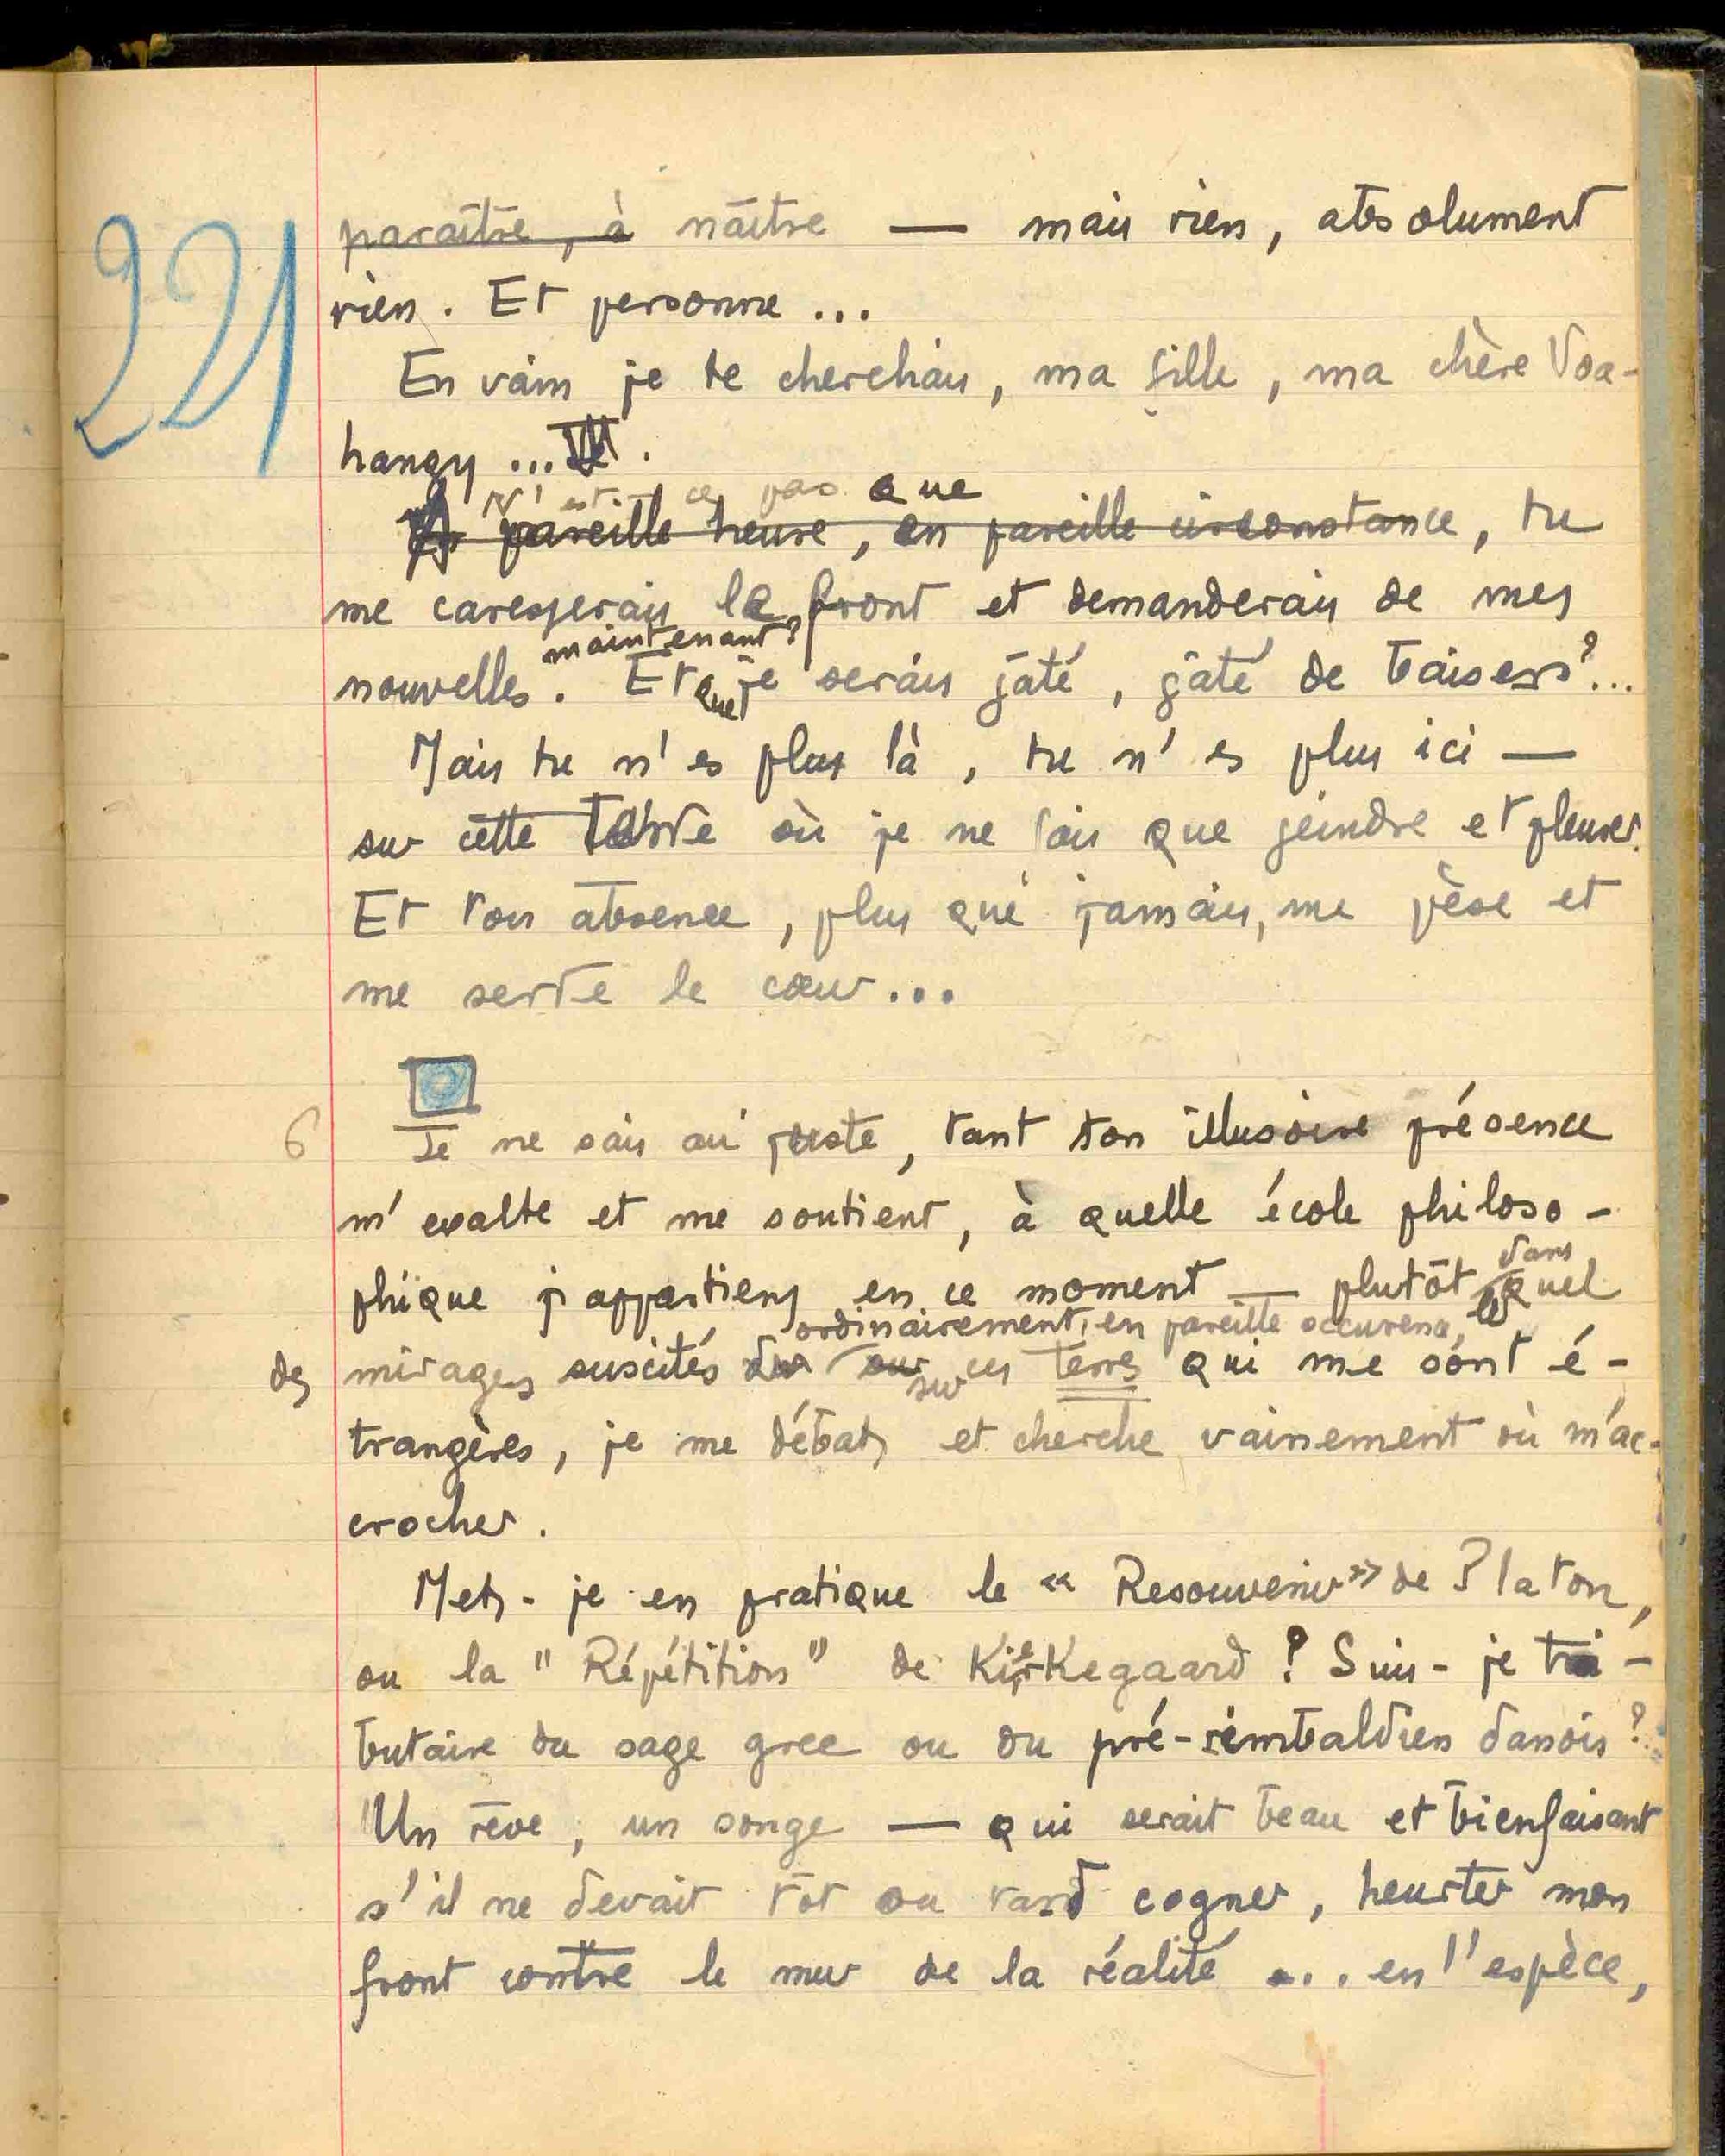 221
paraître, à naître — mais rien, absolument
rien. Et personne...
En vain je te cherchais, ma fille, ma chère Voa-
hangy... .
N'est-ce pas que
pareille heure, en pareille circonstance, tu
me caresserais le front et demanderais de mes
maintenant?
nouvelles. Et que je serais gâté, gâté de baisers?...
Mais tu n'es plus là, tu n'es plus ici —
sur cette terre où je ne fais que geindre et pleurer.
Et ton absence, plus que jamais, me pèse et
me serre le cœur...
6 Je ne sais au juste, tant ton illusoire présence
m'exalte et me soutient, à quelle école philoso-
dans
phique j'appartiens en ce moment — plutôt quel
ordinairement, en pareille occurence,
des mirages suscités sur ces terres qui me sont é-
trangères, je me débats et cherche vainement où m'ac-
crocher.
Mets-je en pratique le « Resouvenir » de Platon,
ou la "Répétition" de Kierkegaard ? Suis-je tri-
butaire du sage grec ou du pré-rimbaldien danois ?
Un rêve, un songe — qui serait beau et bienfaisant
s'il ne devait tôt ou tard cogner, heurter mon
front contre le mur de la réalité ... en l'espèce,